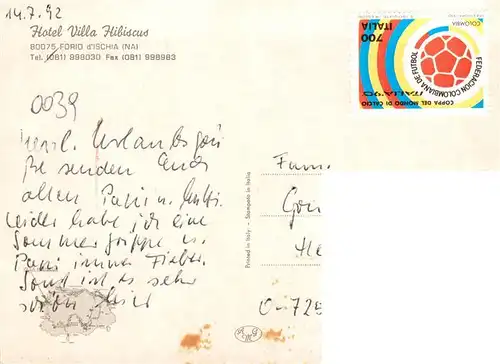 14.7.92
Hotel Villa Hibiscus
80075 FORIO d'ISCHIA (NA)
Tel. (081) 998030 Fax (081) 998983
0039
Herzl. Urlaubsgrü
ße senden Euch
allen Papi u. Mutti
Leider habe ich eine
Sommergrippe u.
Papi immer Fieber.
Sonst ist es sehr
schön hier
Fam
D-72
Printed in Italy - Stampato in Italia
ITALIA
700
COLOMBIA
FEDERACION COLOMBIANA DE FUTBOL
COPPA DEL MONDO DI CALCIO
ITALIA '90